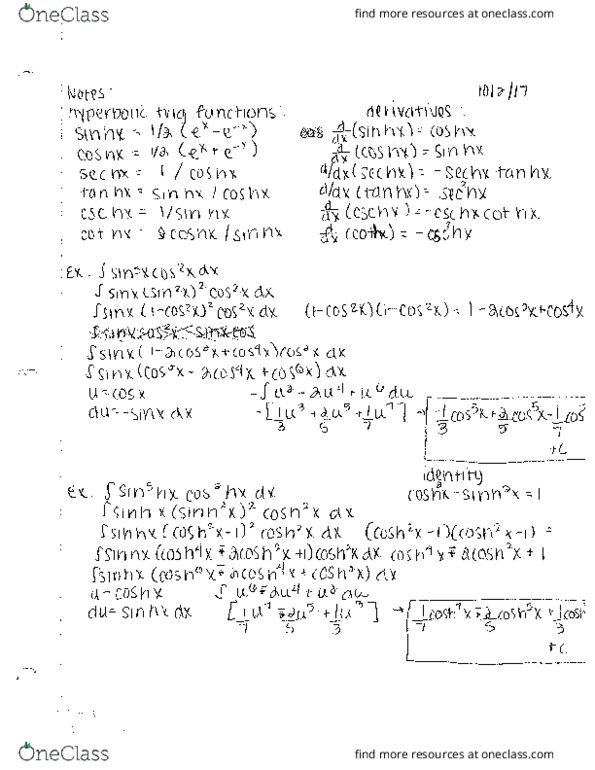 OneClass
find more resources at oneclass.com
Notes: 10/2/17
hyperbolic trig functions: derivatives:
sinhx = 1/2 (e^x - e^-x) d/dx (sinhx) = coshx
coshx = 1/2 (e^x + e^-x) d/dx (coshx) = sinhx
sechx = 1 / coshx d/dx (sechx) = -sechx tanhx
tanhx = sinhx / coshx d/dx (tanhx) = sec²hx
cschx = 1/sinhx d/dx (cschx) = -cschx cothx
cothx = coshx / sinhx d/dx (cothx) = -csc²hx
Ex. ∫sin⁵xcos²x dx
∫sinx(sin²x)² cos²x dx
∫sinx (1-cos²x)² cos²x dx (1-cos²x)(1-cos²x) = 1-2cos²x+cos⁴x
∫sinx(1-2cos²x+cos⁴x)cos²x dx
∫sinx(cos²x - 2cos⁴x + cos⁶x) dx
u=cosx -∫u² - 2u⁴ + u⁶ du
du=-sinx dx -[1/3 u³ + 2/5 u⁵ + 1/7 u⁷] → -1/3 cos³x + 2/5 cos⁵x - 1/7 cos
+C
identity
Ex. ∫sin⁵hx cos²hx dx cosh²x - sinh²x = 1
∫sinhx (sinh²x)² cosh²x dx
∫sinhx (cosh²x-1)² cosh²x dx (cosh²x-1)(cosh²x-1) =
∫sinhx (cosh⁴x - 2cosh²x +1) cosh²x dx cosh⁴x - 2cosh²x + 1
∫sinhx (cosh⁶x - 2cosh⁴x + cosh²x) dx
u=coshx ∫u⁶ - 2u⁴ + u² du
du=sinhx dx [1/7 u⁷ - 2/5 u⁵ + 1/3 u³] → 1/7 cosh⁷x - 2/5 cosh⁵x + 1/3 cosh
+C
OneClass
find more resources at oneclass.com